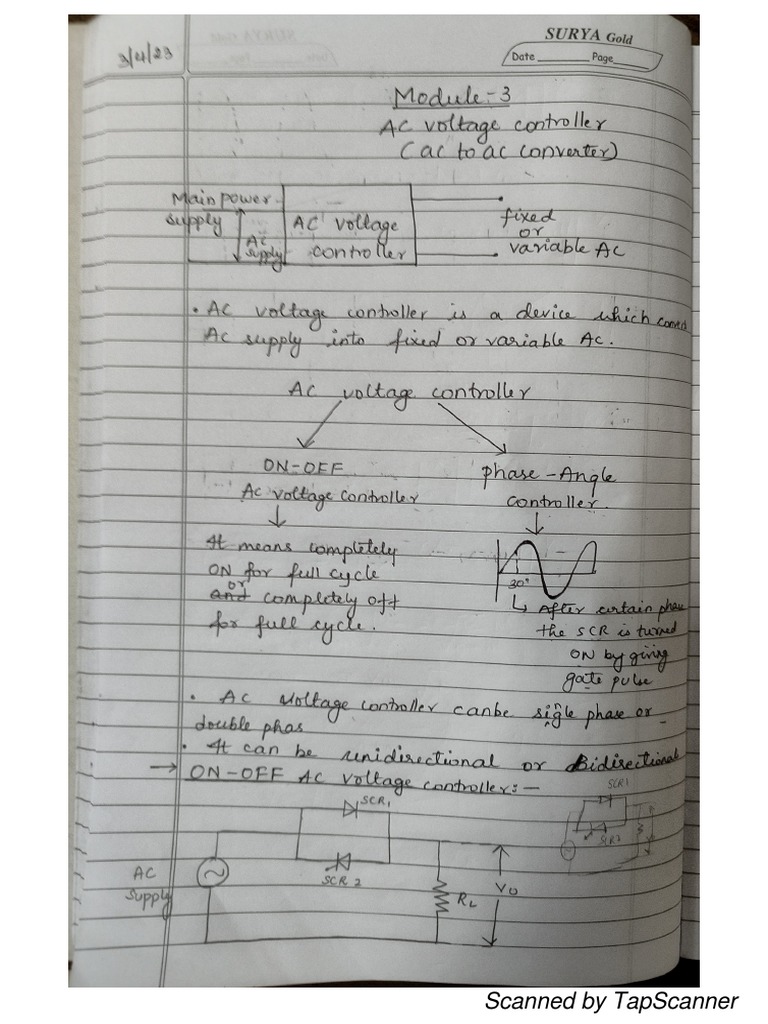 SURYA Gold
3/4/23
Date ________ Page ________
Module-3
AC voltage controller
(ac to ac converter)
Main power
supply
AC
supply
AC voltage
controller
fixed
or
variable AC
• AC voltage controller is a device which
AC supply into fixed or variable AC.
AC voltage controller
ON-OFF
AC voltage controller
It means completely
ON for full cycle
or
and completely off
for full cycle.
phase-Angle
controller.
30°
↳ After certain phase
the SCR is turned
ON by giving
gate pulse
• AC voltage controller canbe single phase or
double phas
• It can be unidirectional or Bidirectional
→ ON-OFF AC voltage controller:-
SCR1
SCR2
SCR1
SCR 2
AC
supply
RL
Vo
Scanned by TapScanner